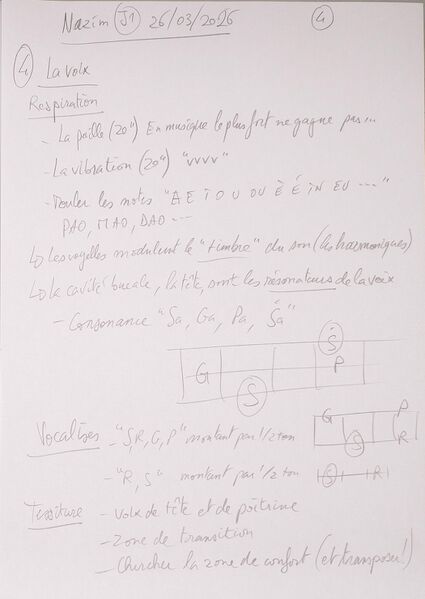 Nazim J1 26/03/2026 4
4 La voix
Respiration
- La paille (20") En musique le plus fort ne gagne pas...
- La vibration (20") "vvvv"
- Rouler les notes "A E I O U OU È É IN EU ---"
PAO, MAO, DAO ---
↳ Les voyelles modulent le "timbre" du son (les harmoniques)
↳ la cavité bucale, la tête, sont les résonateurs de la voix
- Consonance "Sa, Ga, Pa, Ṡa"
Ṡ
G P
S
Vocalises - "S,R,G,P" montant par 1/2 ton
G P
S R
- "R, S" montant par 1/2 ton
S R
Tessiture - Voix de tête et de poitrine
- Zone de transition
- Chercher la zone de confort (et transposer!)